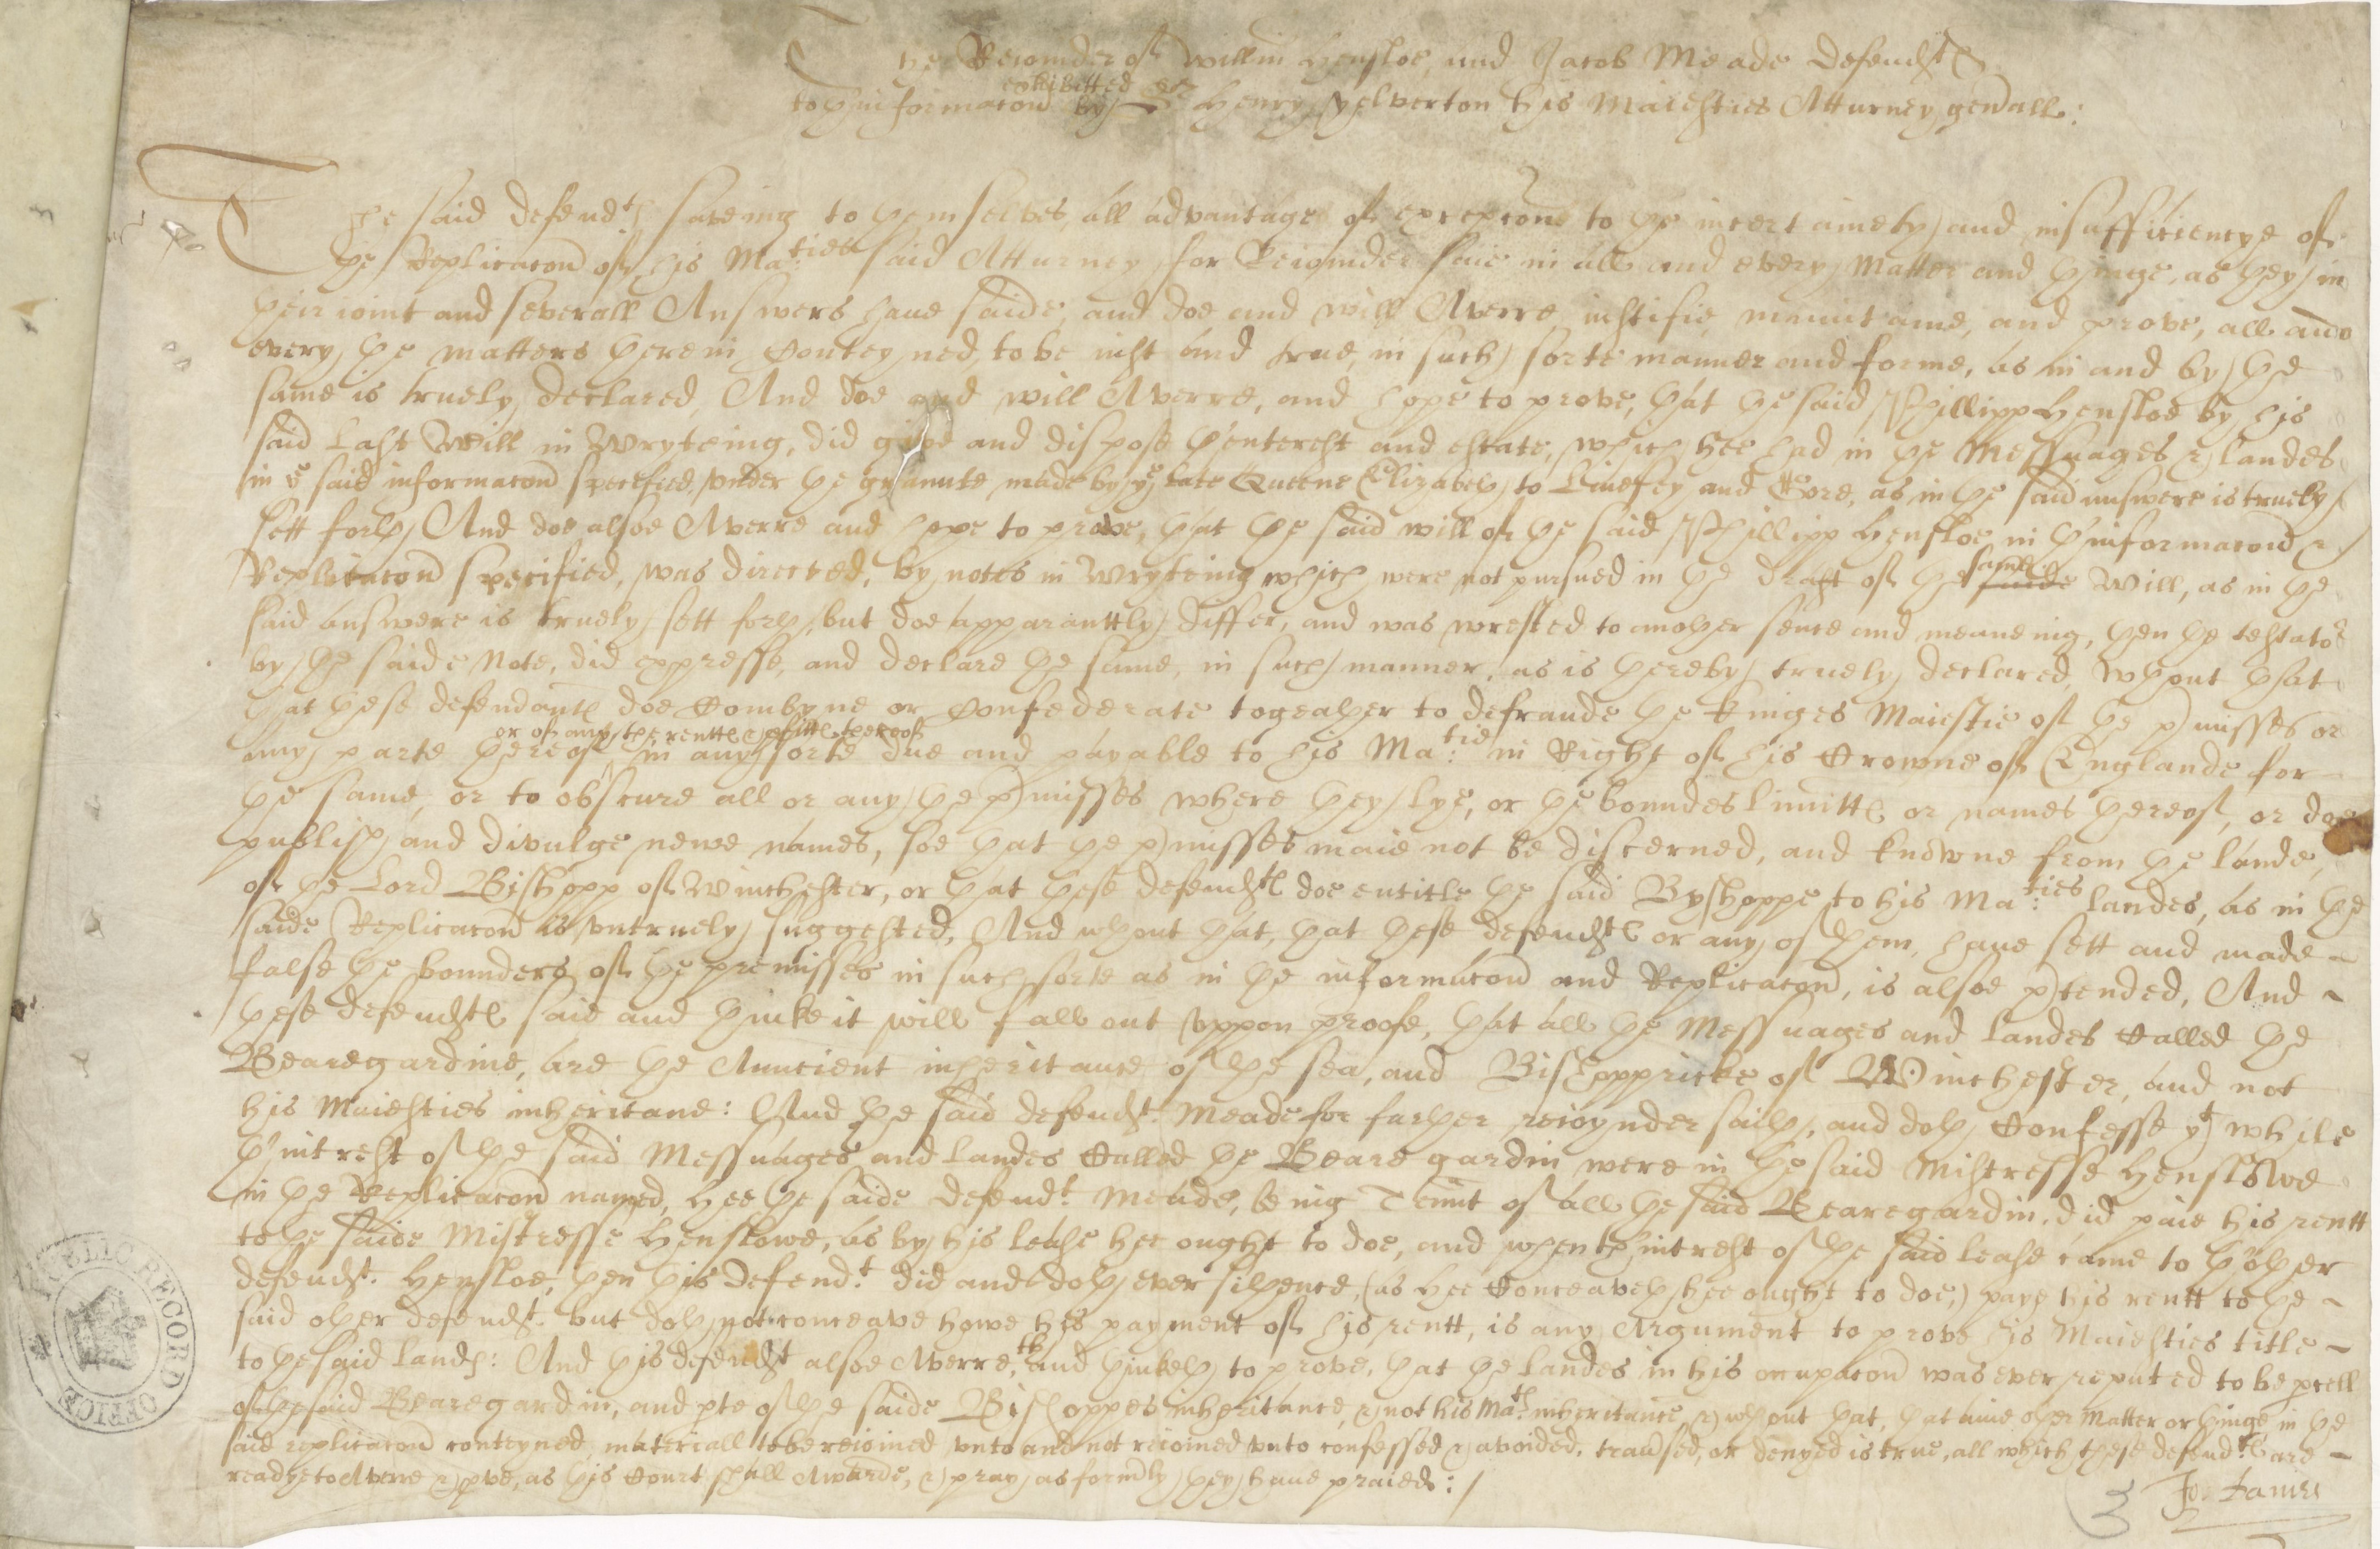 The Reioinder of Willm Hensloe, and Jacob Meade defendts
to thinformacon exhibitted by Sr Henry Yelverton his Maiesties Atturney genall:
The said defendts saveing to themselves all advantage of excepcone to the incertainety and insufficiencye of
the Replicacon of his Ma:ties said Atturney, for Reioinder saie in all and every Matter and thinge, as they in
their ioint and severall Answers haue saide, and doe and will Averre, iustifie, maintaine, and prove, all and
every the matters therein Conteyned, to be iust and true, in such sorte manner and forme, as in and by the
same is truely declared, And doe and will Averre, and hope to prove, that the said Phillipp Hensloe by his
said last Will in Wryteing, did give and dispose thenterest and estate, which hee had in the Messuages & landes
in ye said informacon specefied, vnder the graunte made by ye late Queene Elizabeth, to and as in the said answere is truely
sett forth, And doe alsoe Averre and hope to prove, that the said will of the said Phillipp Hensloe in thinformacon &
Replicacon specified, was directed, by notes in Wryteing which were not pursued in the draft of the same saide Will, as in the
said answere is truely sett forth, but doe apparanttly differ, and was wrested to another sence and meaneing, then the testator
by the saide Note, did expresse, and declare the same, in such manner, as is thereby truely declared, Wthout that
that these defendantes doe Combyne or Confederate togeather to defraude the Kinges Maiestie of the pmisses or
any parte thereof or of any the renttes & profittes thereof in any sorte due and payable to his Ma:tie in Right of his Crowne of Englande for
the same, or to obscure all or any the pmisses where they lye, or the boundes limittes or names thereof, or doe
publish and divulge newe names, soe that the pmisses maie not be discerned, and knowne from the lande,
of the Lord Bishopp of Winchester, or that these defendtes doe entitle the said Byshoppe to his Ma:ties landes, as in the
saide Replicacon is vntruely suggested, And wthout that, that these defendtes or any of them, haue sett and made
false the bounders of the premisses in such sorte as in the informacon and Replicacon, is alsoe ptended, And
these defendtes saie and thinke it will fall out vppon proofe, that all the Messuages and landes Called the
Bearegardine, are the Auncient inheritance of the sea, and Bishoppricke of Winchester, and not
his Maiesties inheritane: And the said defendt. Meade for farther reioynder saith, and doth Confesse yt while
thintrest of the said Messuages and landes Called the Beare gardin were in the said Mistresse Henslowe
in the Replicacon named, hee the saide defendt. Meade, being Tennt of all the said Bearegardin, did paie his rentt
to the saide Mistresse Henslowe, as by his lease hee ought to doe, and when thintrest of the said lease came to thother
defendt. Hensloe, then this defendt. did and doth ever sithence, (as hee Conceaveth hee ought to doe,) paye his rentt to the
said other defendt. but doth not conceave howe his payment of his rentt, is any Argument to prove his Maiesties title
to the said lands: And this defendt alsoe Averreth, and thinketh to prove, that the landes in his occupacon was ever reputed to be pcell
of the said Bearegardin, and pte of the saide Bishoppes inheritance, & not his Mats. inheritance, & wthout that, that anie other Matter or thinge in the
said replicacon conteyned materiall to be reioined vnto and not reioined vnto confessed & avoided, travsed, or denyed is true, all which these defendtes are
readye to Averre & pve, as this Court shall Awarde, & pray as formly they haue praied:/
PUBLIC RECORD OFFICE